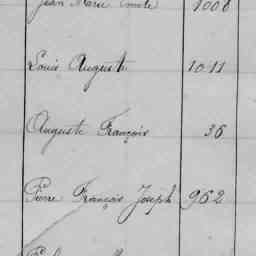 Jean Marie Emile 1006
Louis Auguste 1011
Auguste François 36
Pierre François Joseph 962